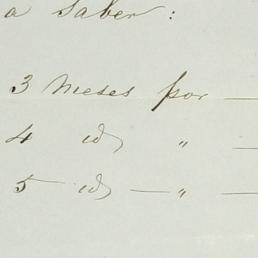 a saber:
3 meses por —
4 id " —
5 id — " —